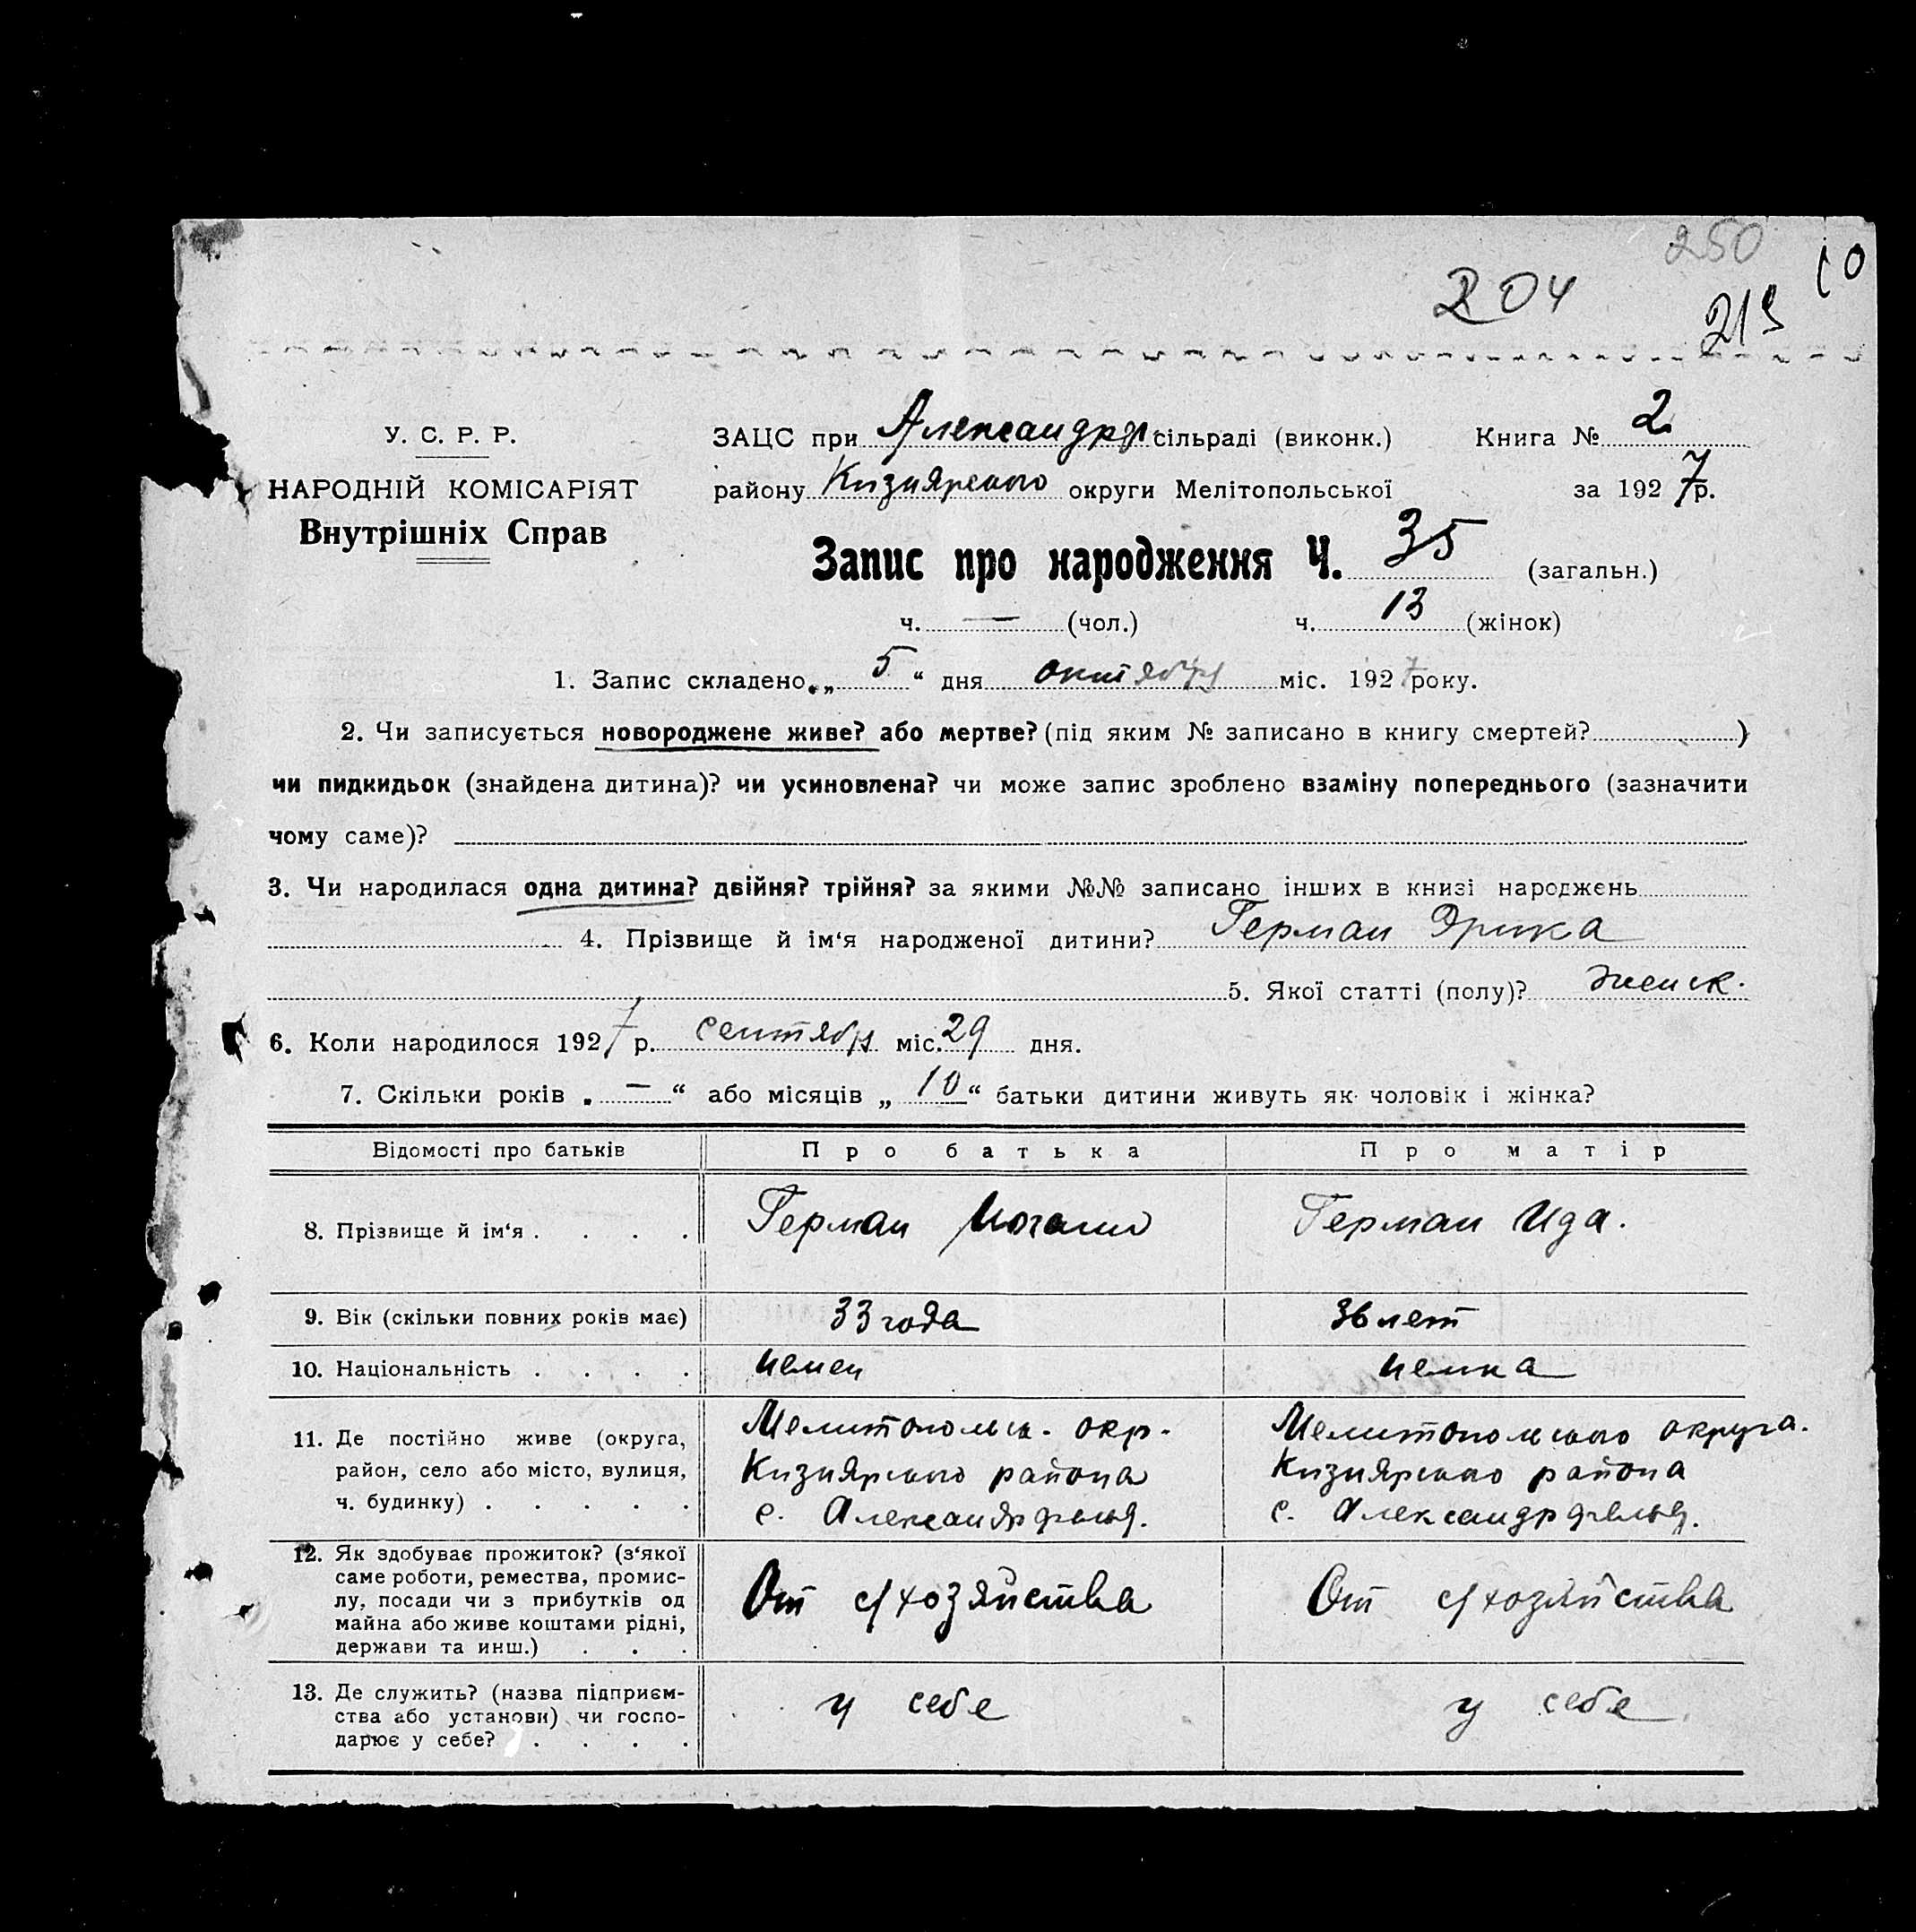 250
10
204
219
У. С. Р. Р.
НАРОДНІЙ КОМІСАРІЯТ
Внутрішніх Справ
ЗАЦС при Александрф. сільраді (виконк.) Книга № 2
району Кизиярского округи Мелітопольської за 1927 р.
Запис про народження Ч. 35 (загальн.)
ч. — (чол.) ч. 13 (жінок)
1. Запис складено „ 5 “ дня октября міс. 1927 року.
2. Чи записується новороджене живе? або мертве? (під яким № записано в книгу смертей? )
чи пидкидьок (знайдена дитина)? чи усиновлена? чи може запис зроблено взаміну попереднього (зазначити
чому саме)?
3. Чи народилася одна дитина? двійня? трійня? за якими №№ записано інших в книзі народжень
4. Прізвище й ім‘я народженої дитини? Герман Эрика
5. Якої статті (полу)? женск.
6. Коли народилося 1927 р. сентября міс. 29 дня.
7. Скільки років „ — “ або місяців „ 10 “ батьки дитини живуть як чоловік і жінка?
Відомості про батьків Про батька Про матір
8. Прізвище й ім‘я . . . . Герман Иоганн Герман Ида.
9. Вік (скільки повних років має) 33 года 36 лет
10. Національність . . . . немец немка
11. Де постійно живе (округа,
район, село або місто, вулиця,
ч. будинку) . . . . .
Мелитопольск. окр.
Кизиярского района
с. Александрфельд.
Мелитопольского округа.
Кизиярского района
с. Александрфельд.
12. Як здобуває прожиток? (з‘якої
саме роботи, ремества, промис-
лу, посади чи з прибутків од
майна або живе коштами рідні,
держави та инш.) . . .
От с/хозяйства От с/хозяйства
13. Де служить? (назва підприєм-
ства або установи) чи госпо-
дарює у себе? . . . .
у себе у себе